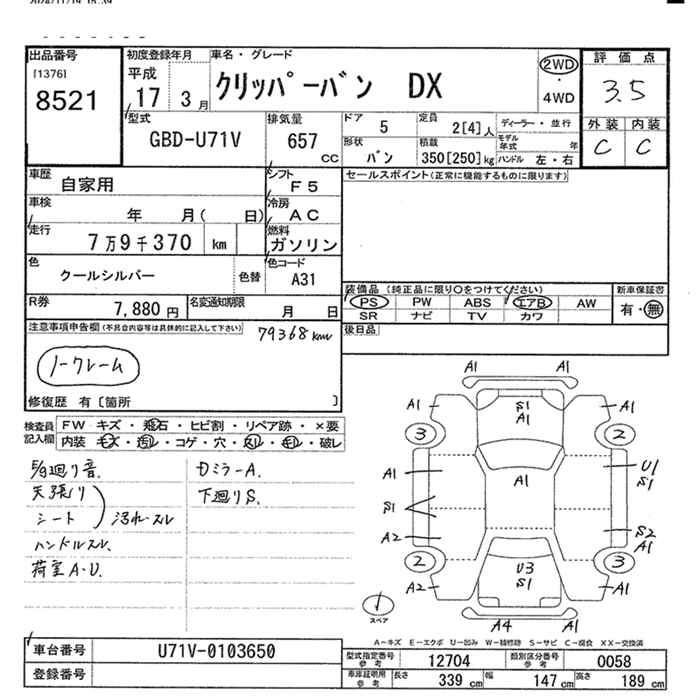 2024/11/19 15:39
出品番号
[1376]
8521
初度登録年月
平成
17 3月
車名・グレード
クリッパーバン DX
2WD
・
4WD
評価点
3.5
外装 内装
C C
型式
GBD-U71V
排気量
657
CC
ドア 5
定員 2[4]人
ディーラー・並行
モデル年式 年
形状 バン
積載 350[250]kg
ハンドル 左・右
車歴
自家用
シフト
F5
セールスポイント(正常に機能するものに限ります)
車検
年 月( 日)
冷房
AC
走行
7万9千370 km
燃料
ガソリン
色
クールシルバー
色替
色コード
A31
装備品 (純正品に限り○をつけてください)
PS PW ABS エアB AW
SR ナビ TV カワ
新車保証書
有・無
R券
7,880円
名変通知期限
月 日
後日品
注意事項申告欄(不具合内容等は具体的に記入して下さい)
79368km
ノークレーム
修復歴 有[箇所 ]
検査員記入欄
FW キズ・飛石・ヒビ割・リペア跡・×要
内装 キズ・汚レ・コゲ・穴・スレ・キレ・破レ
天張り
シート
汚れ・スレ
ハンドルスレ、
荷室A・U.
下廻りS.
A1 A1
A1 S1 A1 A1
3 2
A1 A1 U1 S1
S1
A2 S2 A1
2 U3 S1 3
A2 A1
A4 A1
スペア
A−キズ E−エクボ U−凹み W−補修跡 S−サビ C−腐食 XX−交換済
車台番号
U71V-0103650
登録番号
型式指定番号参考 12704
類別区分番号参考 0058
車庫証明用参考 長さ 339cm 幅 147cm 高さ 189cm